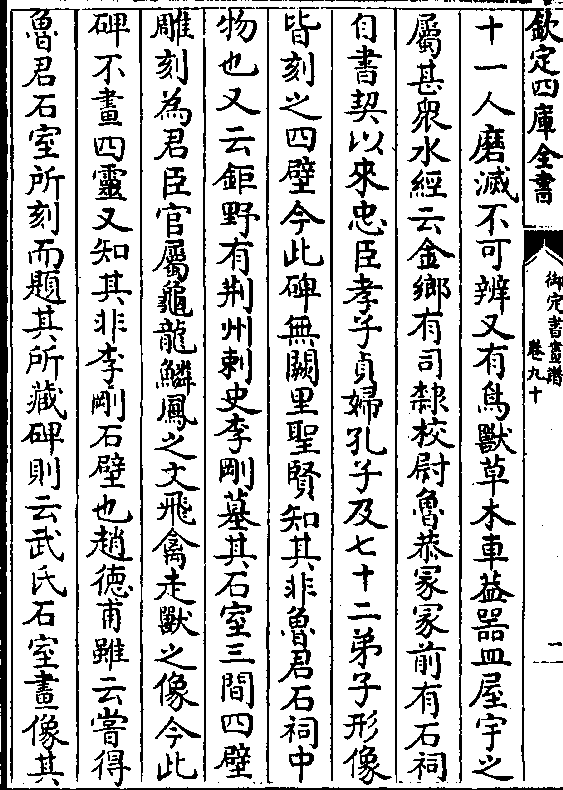 欽定四庫全書
御定書畫譜
卷九十
二
十一人磨滅不可辨又有鳥獸草木車葢器皿屋宇之
屬甚衆水經云金鄉有司𨽻校尉魯恭冢冢前有石祠
自書契以來忠臣孝子貞婦孔子及七十二弟子形像
皆刻之四壁今此碑無闕里聖賢知其非魯君石祠中
物也又云鉅野有荆州刺史李剛墓其石室三間四壁
雕刻為君臣官屬龜龍鱗鳳之文飛禽走獸之像今此
碑不畫四靈又知其非李剛石壁也趙德甫雖云嘗得
魯君石室所刻而題其所藏碑則云武氏石室畫像其